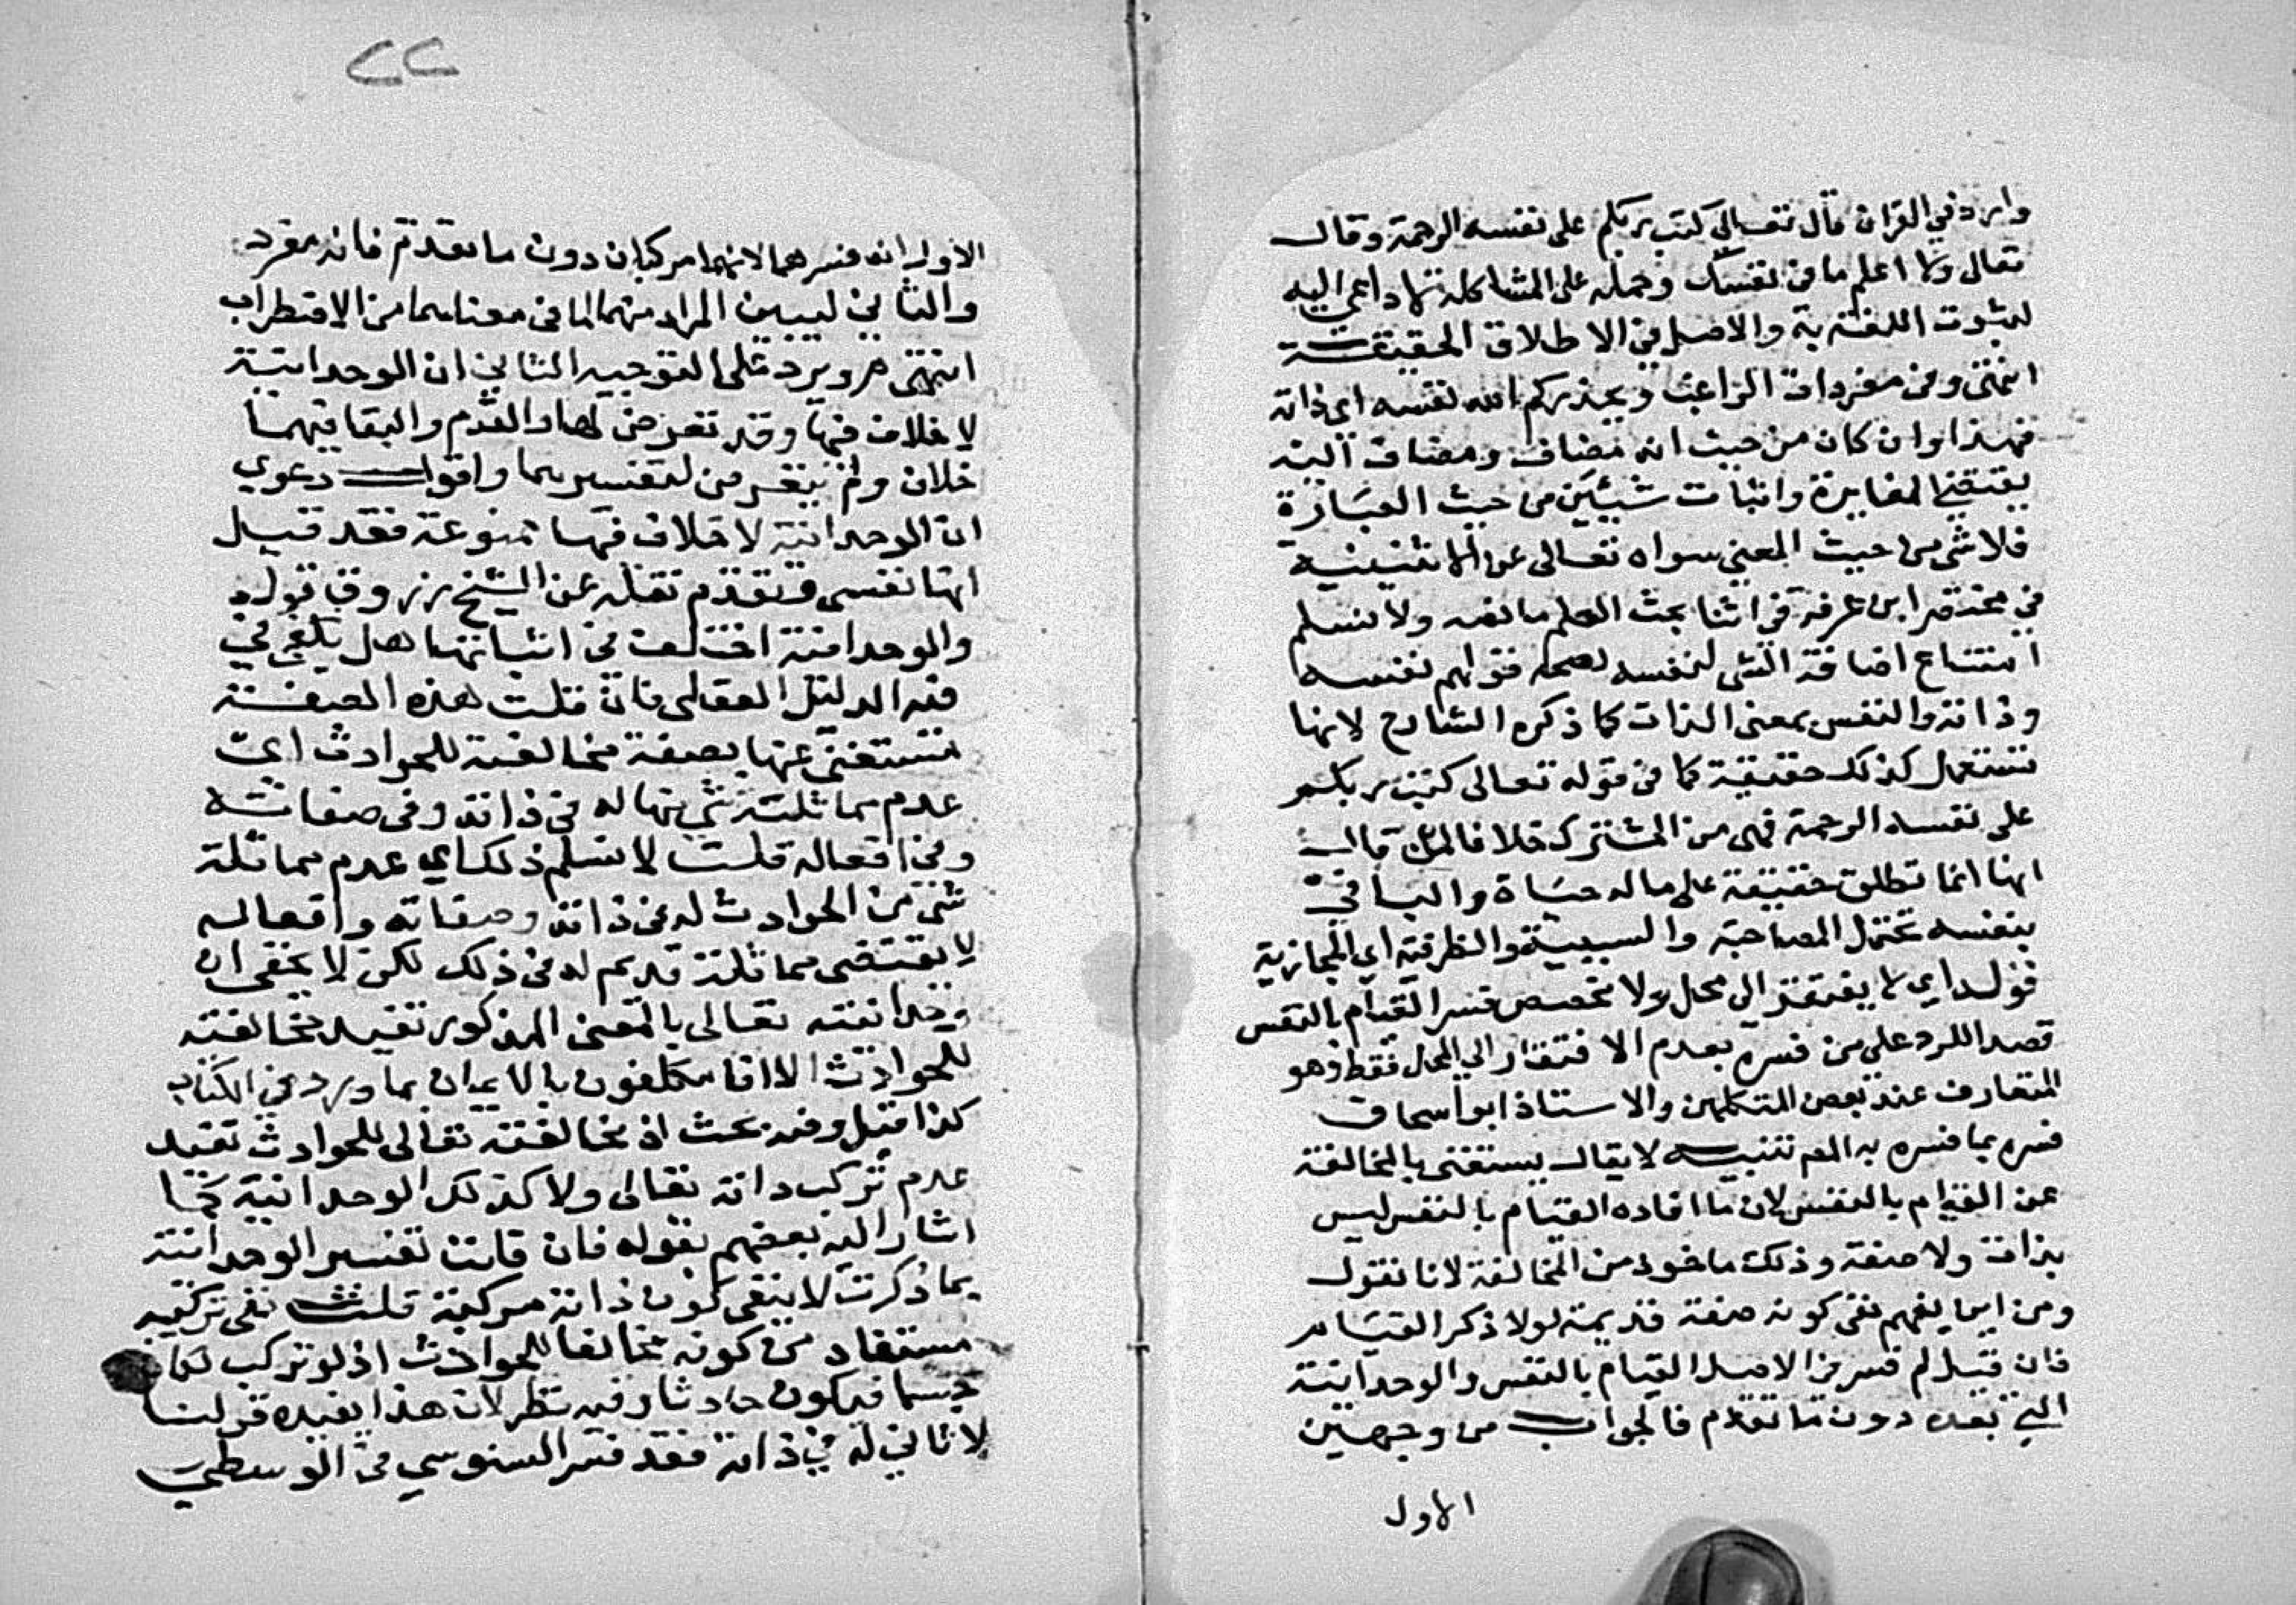 وارد في القران قال تعالى كتب ربكم على نفسه الرحمة وقال
تعالى ولا اعلم ما في نفسك وحمله على المشاكلة لا داعي اليه
لثبوت اللغة به والاصل في الاطلاق الحقيقة
انتهى وفي مفردات الراغب ويحذركم الله نفسه اي ذاته
فهذا وان كان من حيث انه مضاف ومضاف اليه
يقتضي المغايرة واثبات شيئين من حيث العبارة
فلا شي من حيث المعني سواه تعالى عن الاثنينية
في مختصر ابن عرفة في اثنا بحث العلم ما نصه ولا نسلم
امتناع اضافة الشي لنفسه لصحة قولهم نفسه
وذاته والنفس بمعنى الذات كما ذكره الشارح لانها
تستعمل كذلك حقيقة كما في قوله تعالى كتب ربكم
على نفسه الرحمة فهي من المشترك خلافا لمن قال
انها انما تطلق حقيقة على ما له حياة والبا في
بنفسه تحتمل المصاحبة والسببية والظرفية اي المجازية
قوله اي لا يفتقر الى محل ولا مخصص فسر القيام بالنفس
قصدا للرد على من فسره بعدم الافتقار الي المحل فقط وهو
المتعارف عند بعض المتكلمين والاستاذ ابو اسحاق
فسره بما فسره به المص تنبيه لا يقال يستغنى بالمخالفة
عن القيام بالنفس لان ما افاده القيام بالنفس ليس
بذات ولا صفة وذلك ماخوذ من المخالفة لانا نقول
ومن اين يفهم نفى كونه صفة قديمة لولا ذكر القيام
فان قيل لم فسر في الاصل القيام بالنفس والوحدانية
التي بعده دون ما تقدم فالجواب من وجهين
الاول
٢٢
الاول انه فسرهما لانهما مركبان دون ما تقدم فانه مفرد
والثاني ليبين المراد منهما لما في معناهما من الاضطراب
انتهى ويرد على التوجيه الثاني ان الوحدانية
لا خلاف فيها وقد تعرض لها والقدم والبقا فيهما
خلاف ولم يتعرض لتفسيرهما واقول دعوي
ان الوحدانية لا خلاف فيها ممنوعة فقد قيل
انها نفسى وتقدم نقله عن الشيخ زروق قوله
والوحدانية اختلف في اثباتها هل يكفي في
فيه الدليل العقلى فان قلت هذه الصفة
تستغنى عنها بصفة مخالفته للحوادث اي
عدم مماثلة شي منها له في ذاته وفى صفاته
وفي افعاله قلت لا نسلم ذلك اي عدم مماثلة
شى من الحوادث له في ذاته وصفاته وافعاله
لا يقتضى مماثلة قديم له في ذلك لكن لا يخفى ان
وحدانيته تعالى بالمعنى المذكور تفيد مخالفته
للحوادث الا انا مكلفون بالايمان بما ورد في الكتاب
كذا قيل وفيه بحث اذ مخالفته تعالى للحوادث تفيد
عدم تركب ذاته تعالى ولا كذلك الوحدانية كما
اشار اليه بعضهم بقوله فان قلت تفسير الوحدانية
بما ذكرت لا ينفى كون ذاته مركبة قلت نفى تركيبه
مستفاد من كونه مخالفا للحوادث اذ لو تركب لكان
جسما فيكون حادثا وفيه نظر لان هذا يفيده قولنا
لا ثاني له في ذاته فقد فسر السنوسي في الوسطى